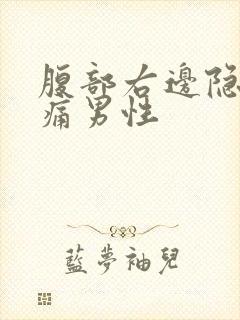 腹部右邊隐
痛男性
藍夢袖兒